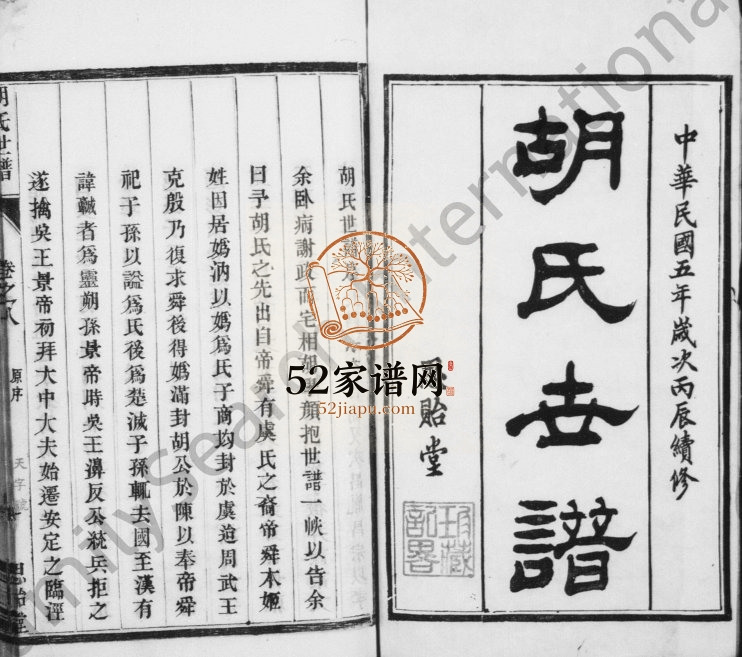 中華民國五年歲次丙辰續修
胡氏世譜
貽堂
珍藏
記略
胡氏世
余臥病謝政而宅相胡 顏抱世譜一帙以告余
曰予胡氏之先出自帝舜有虞氏之裔帝舜本姬
姓因居媯汭以媯爲氏子商均封於虞迨周武王
克殷乃復求舜後得媯滿封胡公於陳以奉帝舜
祀子孫以謚爲氏後爲楚滅子孫輒去國至漢有
諱
者爲靈朔孫景帝時吳王濞反公統兵拒之
遂擒吳王景帝初拜大中大夫始遷安定之臨涇
胡氏世譜
卷之八
原序
天字號
思貽堂
52家谱网
52jiapu.com
FamilySearch International